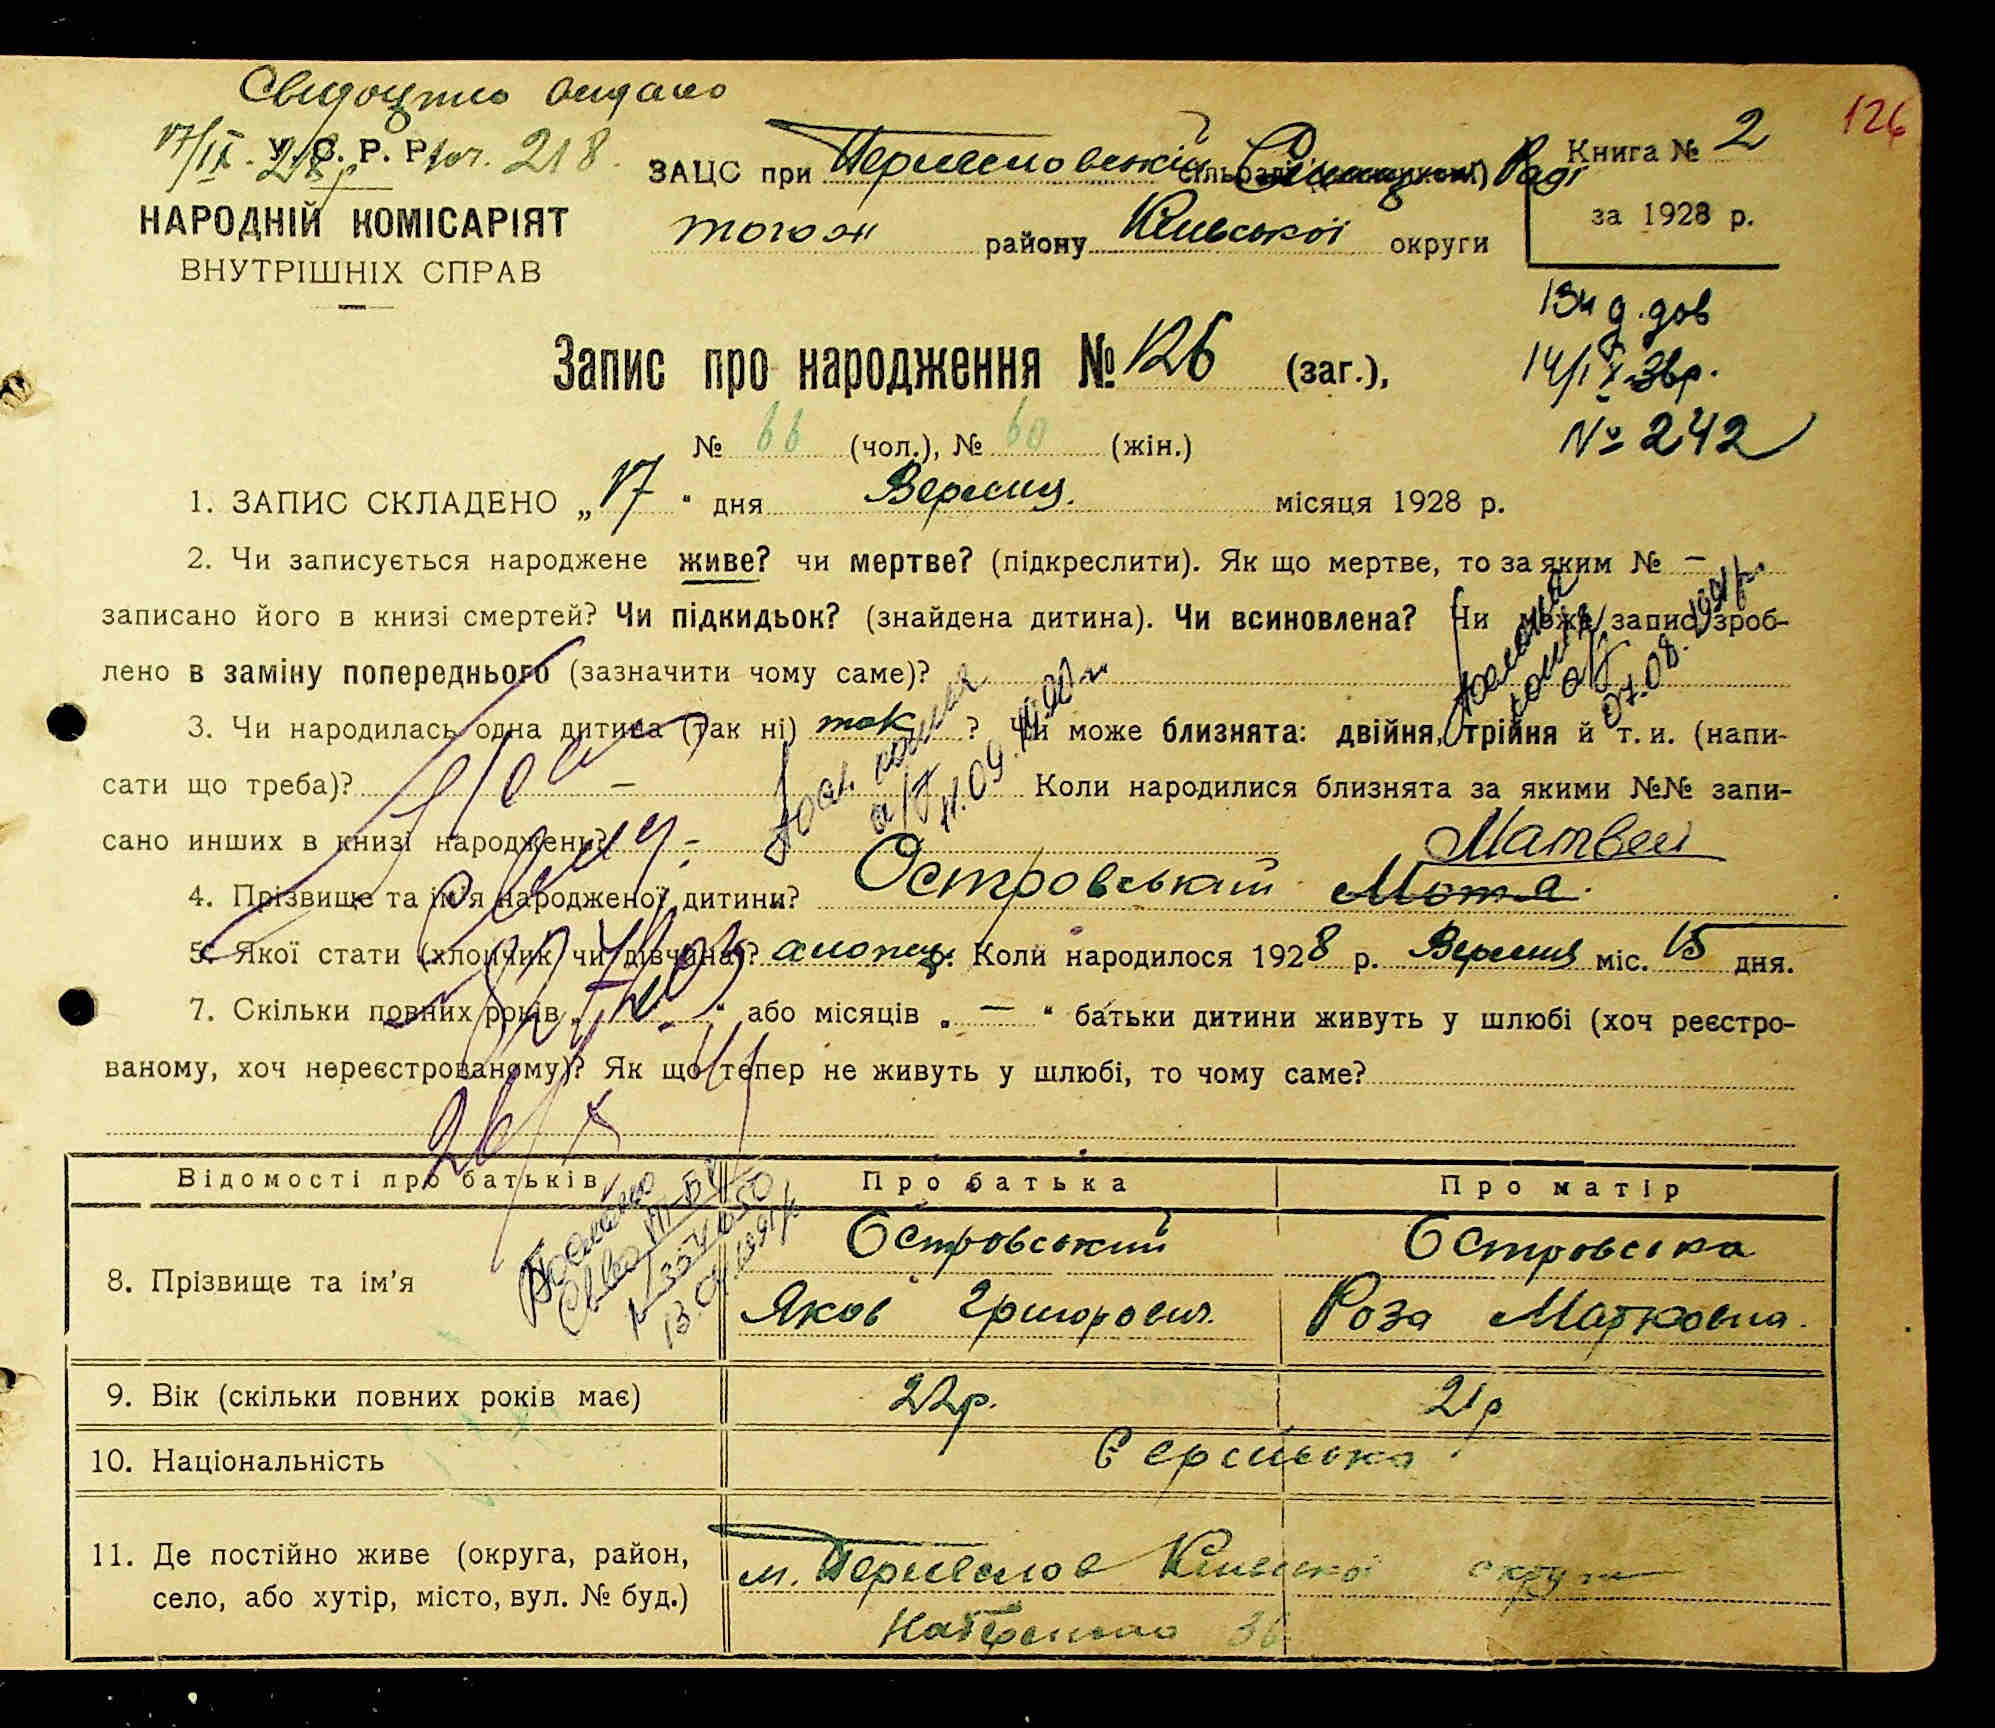 Свідоцтво видано
126
17/IX-28р. 218.
У. С. Р. Р.
ЗАЦС при Переяславській сільраді Раді
Книга № 2
НАРОДНІЙ КОМІСАРІЯТ
тогож району Київської округи
за 1928 р.
ВНУТРІШНІХ СПРАВ
14/IX
№ 242
Запис про народження № 126 (заг.),
№ 66 (чол.), № 60 (жін.)
1. ЗАПИС СКЛАДЕНО „17“ дня Вересня місяця 1928 р.
2. Чи записується народжене живе? чи мертве? (підкреслити). Як що мертве, то за яким № —
записано його в книзі смертей? Чи підкидьок? (знайдена дитина). Чи всиновлена? Чи може запис зроб-
лено в заміну попереднього (зазначити чому саме)?
3. Чи народилась одна дитина (так ні) так? Чи може близнята: двійня, трійня й т. и. (напи-
сати що треба)? — Коли народилися близнята за якими №№ запи-
сано инших в книзі народжень? —
Матвей
4. Прізвище та ім’я народженої дитини? Островський Мотя.
5. Якої стати (хлопчик чи дівчина)? хлопец. Коли народилося 1928 р. Вересня міс. 15 дня.
7. Скільки повних років „ “ або місяців „ — “ батьки дитини живуть у шлюбі (хоч реєстро-
ваному, хоч нереєстрованому)? Як що тепер не живуть у шлюбі, то чому саме?
Відомості про батьків
Про батька
Про матір
8. Прізвище та ім’я
Островський
Яков Григорович.
Островська
Роза Марковна.
9. Вік (скільки повних років має)
22р.
21р
10. Національність
Єврейська
11. Де постійно живе (округа, район,
село, або хутір, місто, вул. № буд.)
м. Переяслов Київської округи
36